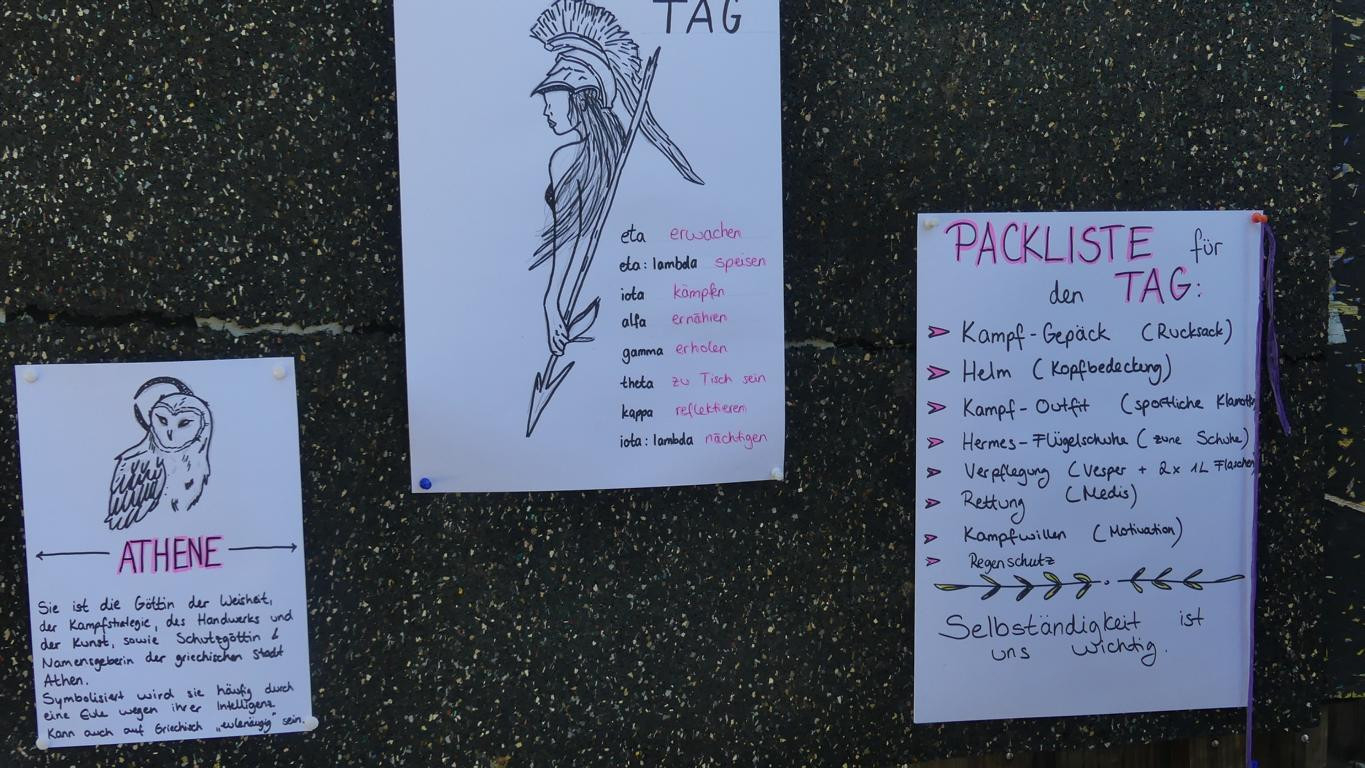 ATHENE
Sie ist die Göttin der Weisheit,
der Kampfstrategie, des Handwerks und
der Kunst, sowie Schutzgöttin &
Namensgeberin der griechischen Stadt
Athen.
Symbolisiert wird sie häufig durch
eine Eule wegen ihrer Intelligenz.
Kann auch auf Griechisch „eulenäugig" sein.
TAG
eta erwachen
eta: lambda speisen
iota kämpfen
alfa ernähren
gamma erholen
theta zu Tisch sein
kappa reflektieren
iota: lambda nächtigen
PACKLISTE für
den TAG:
Kampf-Gepäck (Rucksack)
Helm (Kopfbedeckung)
Kampf-Outfit (sportliche
Hermes-Flügelschuhe (zune Schuhe)
Verpflegung (Vesper + 2x 1L Flaschen
Rettung (Medis)
Kampfwillen (Motivation)
Regenschutz
Selbständigkeit ist
uns wichtig.